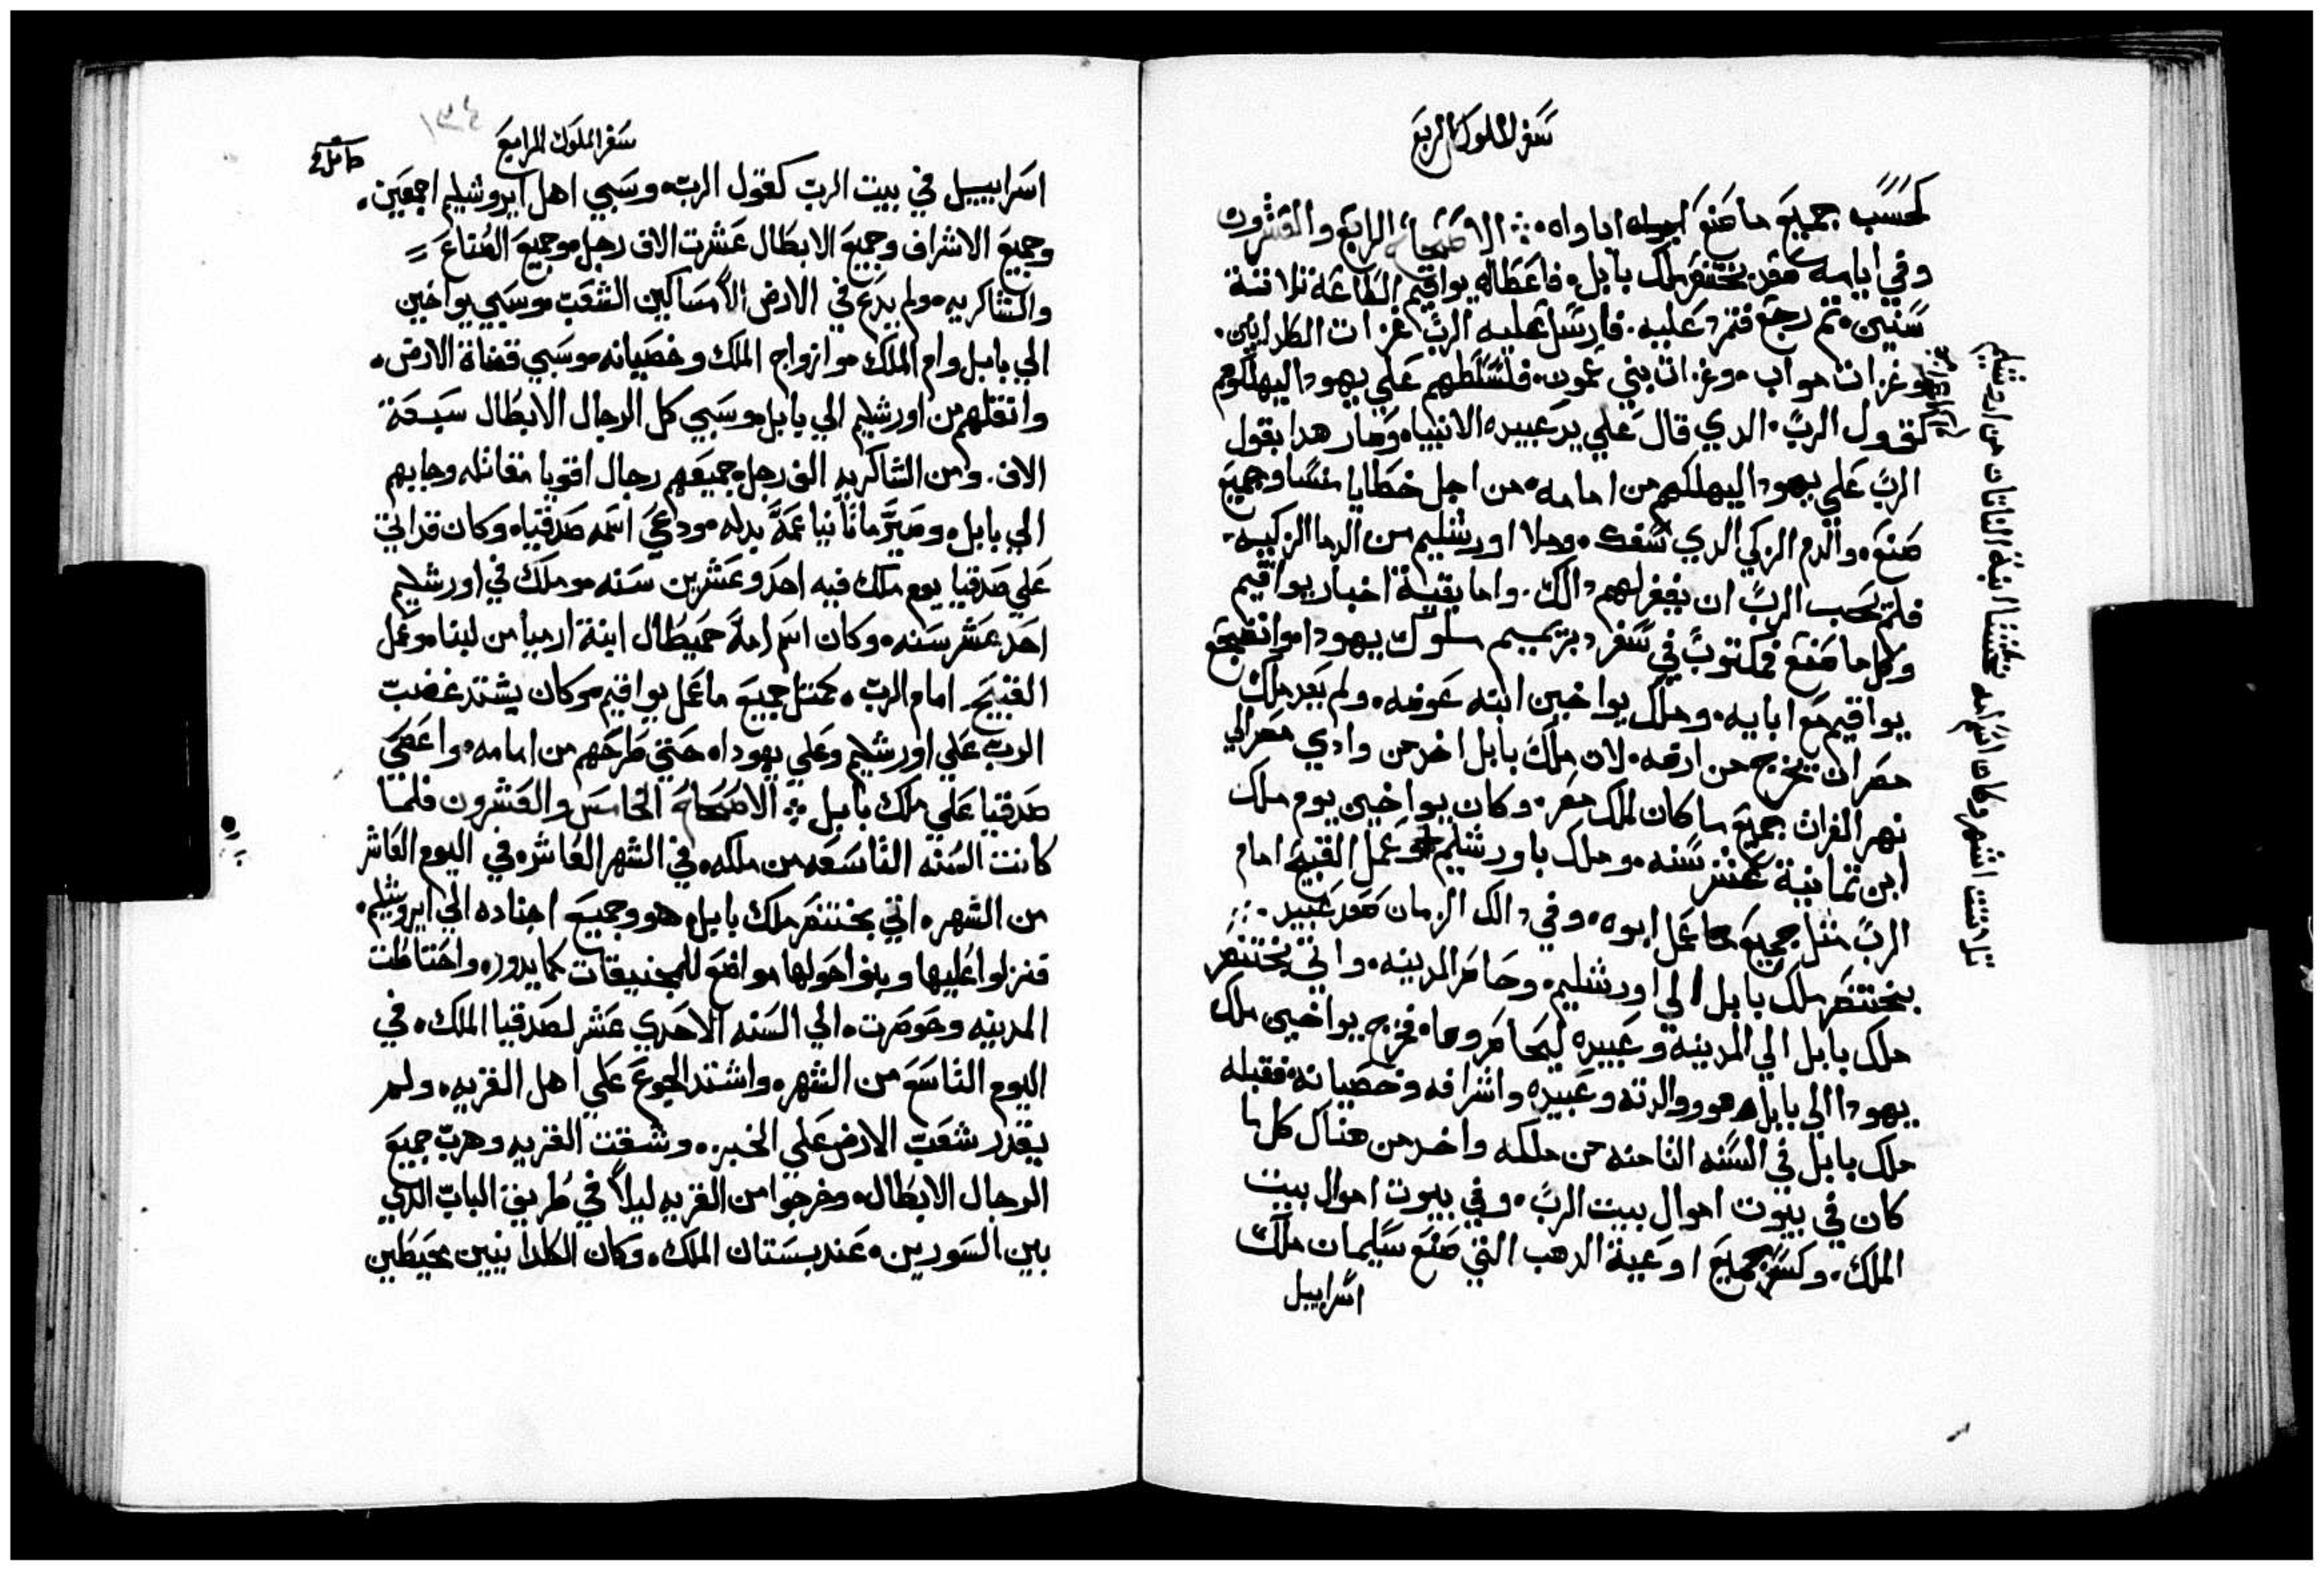 سفر الملوك الربع
كحسب جميع ما صنع اباواه ܀ الاصحاح الرابع والعشرون
وفي ايامه صعد بختنصر ملك بابل. فاعطاله يواقيم الطاعة ثلاثة
سنين. ثم رجع فتمرد عليه. فارسل عليه الرب غزات الكلدانين.
وغزات مواب. وغزات بني عمون. فلسلطهم علي يهودا ليهلكوهم
كقول الرب. الدي قال علي يد عبيده الانبياه وصار هدا بقول
الرب علي يهودا ليهلكهم من امامه. من اجل خطايا منسا وجميع
صنع. والدم الزكي الدي سفك. وملا اورشليم من الدما الزكيه.
فلم يحب الرب ان يغفر لهم دالك. واما بقية اخبار يواقيم
وكلما صنع فمكتوب في سفر دبريميم ملوك يهودا. وانضجع
يواقيم مع ابايه. وملك يواخين ابنه عوضه. ولم يعد ملك
مصر ان يخرج من ارضه. لان ملك بابل اخد من وادي مصر الي
نهر الفراث جميع ما كان لملك مصر. وكان يواخين يوم ملك
ابن تمانية عشر سنه. وملك باورشليم وعمل القبيح امام
الرب مثل جميع ما عمل ابوه. وفي دالك الزمان صعد عبيد
بختنصر ملك بابل الي اورشليم. وحاصر المدينه. واتي بختنصر
ملك بابل الي المدينه وعبيده ليحاصروها. فخرج يواخين ملك
يهودا الي بابل هو ووالدته وعبيده واشرافه وخصيانه. فقبله
ملك بابل في السنه التامنه من ملكه واخد من هناك كل ما
كان في بيوت اموال بيت الرب. وفي بيوت اموال بيت
الملك. وكسر جميع اوعية الدهب التي صنع سليمان ملك
اسراييل
تلاتت اشهر وكان اسم امه نخشتا ابنة الناتان من اورشليم
سفر الملوك الرابع
١٣٤
اسراييل في بيت الرب كقول الرب. وسبي اهل ايروشليم اجمعين.
وجميع الاشراف وجميع الابطال عشرت الاف رجل. وجميع الصناع
والشاكريه. ولم يدع في الارض الا مساكين الشعب. وسبي يواخين
الي بابل وام الملك. وازواج الملك وخصيانه. وسبي قضاة الارض.
وانقلهم من اورشليم الي بابل. وسبي كل الرجال الابطال سبعة
الاف. ومن الشاكريه الف رجل. جميعهم رجال اقويا مقاتله وجابهم
الي بابل. وصير ماتانيا عمه بدله. ودعي اسمه صدقياه. وكان قد اتي
علي صدقيا يوم ملك فيه احد وعشرين سنه. وملك في اورشليم
احد عشر سنه. وكان اسم امه حميطال ابنة ارميا من لبنا. وعمل
القبيح امام الرب. كمتل جميع ما عمل يواقيم. وكان يشتد غضب
الرب علي اورشليم وعلي يهوداه حتي طرحهم من امامه. واعصي
صدقيا علي ملك بابل ܀ الاصحاح الخامس والعشرون فلما
كانت السنه التاسعه من ملكه. في الشهر العاشر. في اليوم العاشر
من الشهر. اتي بختنصر ملك بابل. هو وجميع اجناده الي ايروشليم.
فنزلوا عليها وبنوا حولها مواضع للمجنيقات كما يدور. واحتاطت
المدينه وحوصرت. الي السنه الاحدي عشر لصدقيا الملك. في
اليوم التاسع من الشهر. واشتد الجوع علي اهل القريه. ولم
يقدر شعب الارض علي الخبز. وشقت القريه وهرب جميع
الرجال الابطال. وخرجوا من القريه ليلاً في طريق الباب الدي
بين السورين. عند بستان الملك. وكان الكلدانيين محيطين